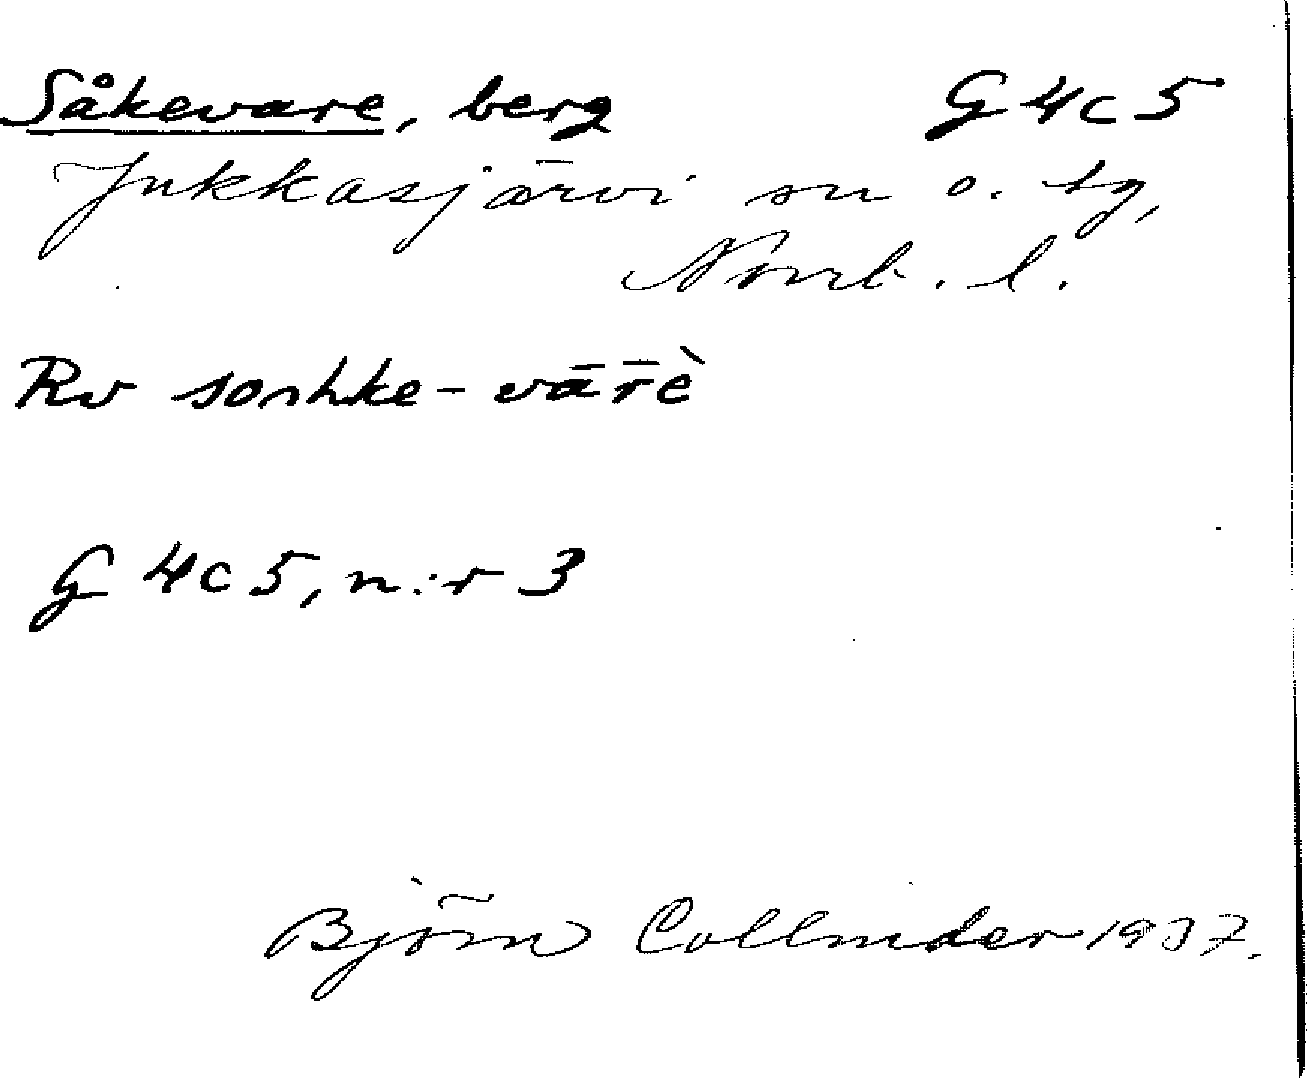 Såkevare, berg G4c5
Jukkasjärvi sn o. tg,
Norrb. l.
Rv sohke-vār̄è
G 4c5, n:r 3
Björn Collinder 1937.